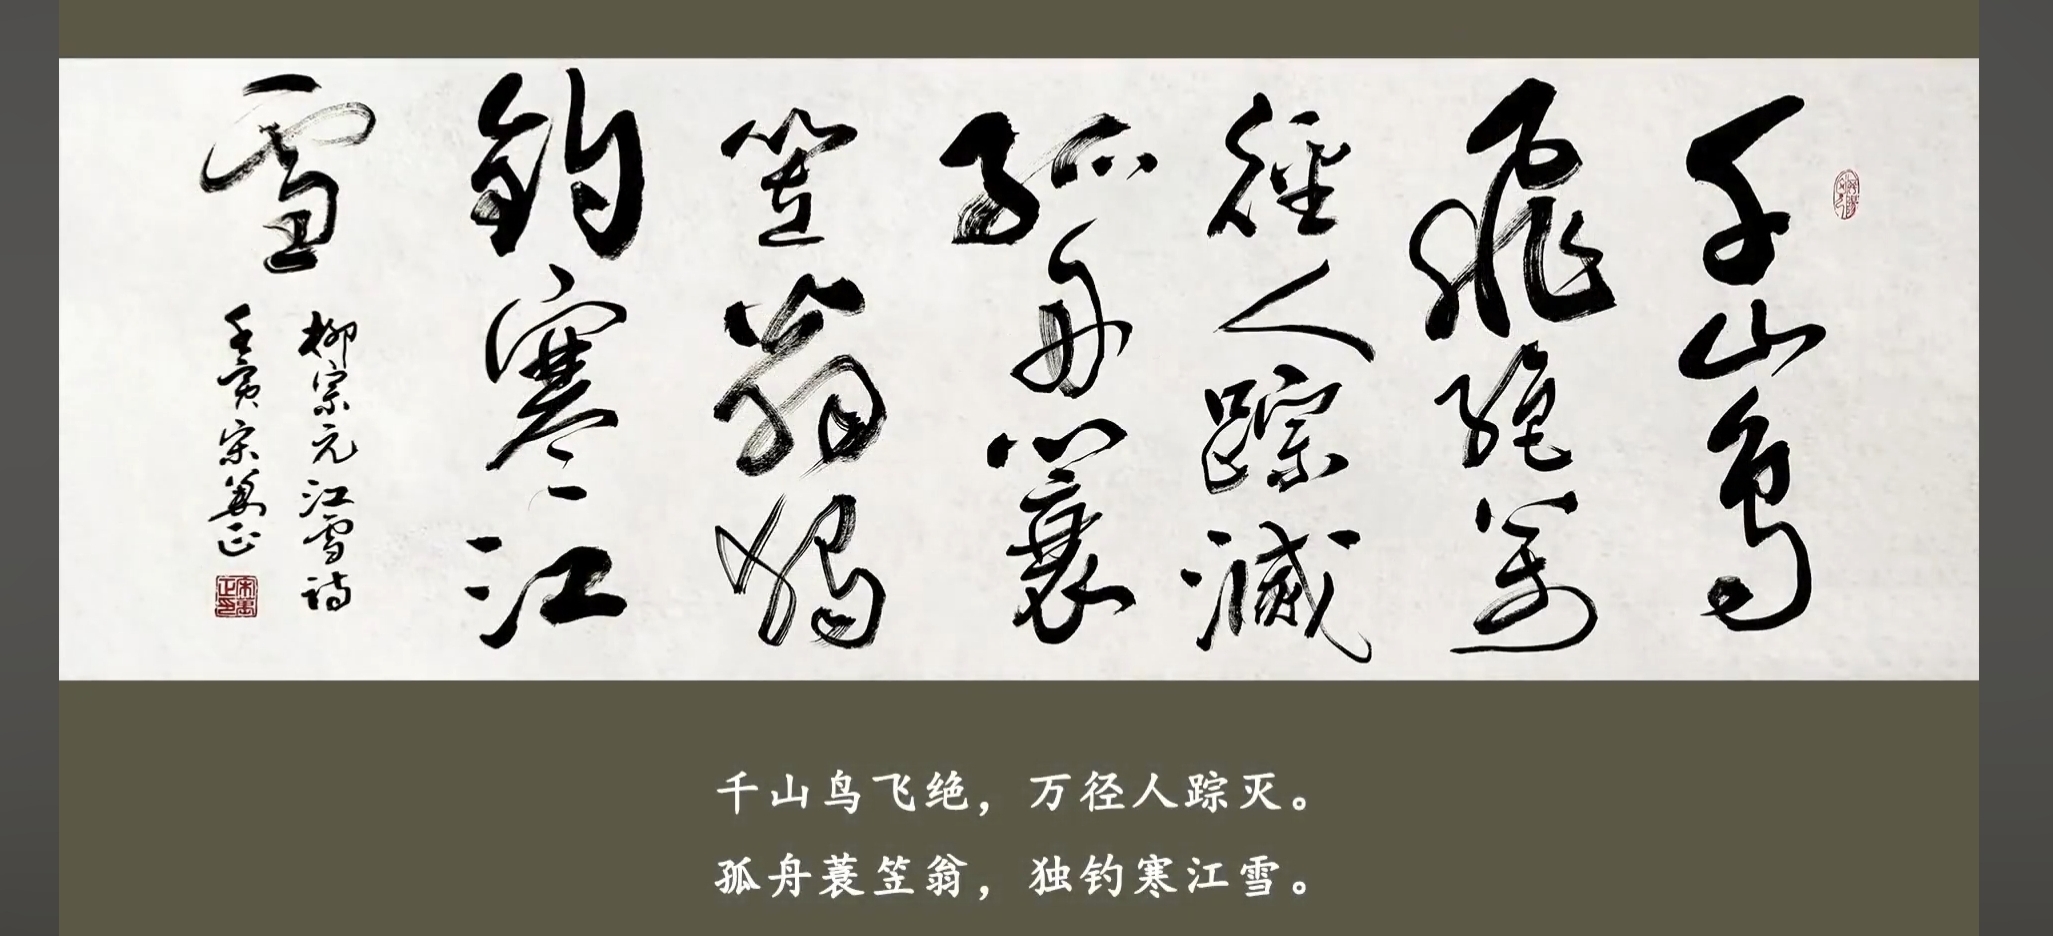 千山鳥
飛絕萬
徑人蹤滅
孤舟蓑
笠翁獨
釣寒江
雪
柳宗元江雪詩
壬寅宋萬正
千山鸟飞绝，万径人踪灭。
孤舟蓑笠翁，独钓寒江雪。